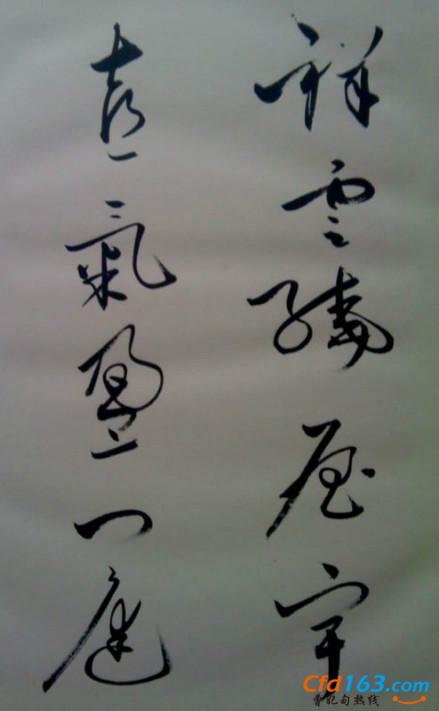 祥雲繞屋宇
喜氣盈门庭
Cfd163.com
曹妃甸热线